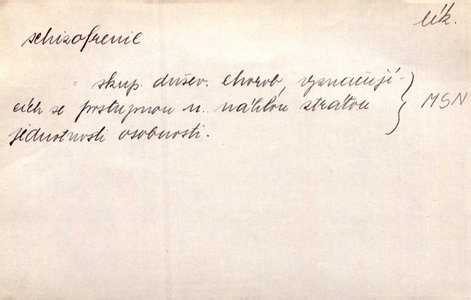 lék.
schizofrenie
skup. dušev. chorob, vyznačují-
cích se postupnou n. náhlou ztrátou
jednotnosti osobnosti.
MSN